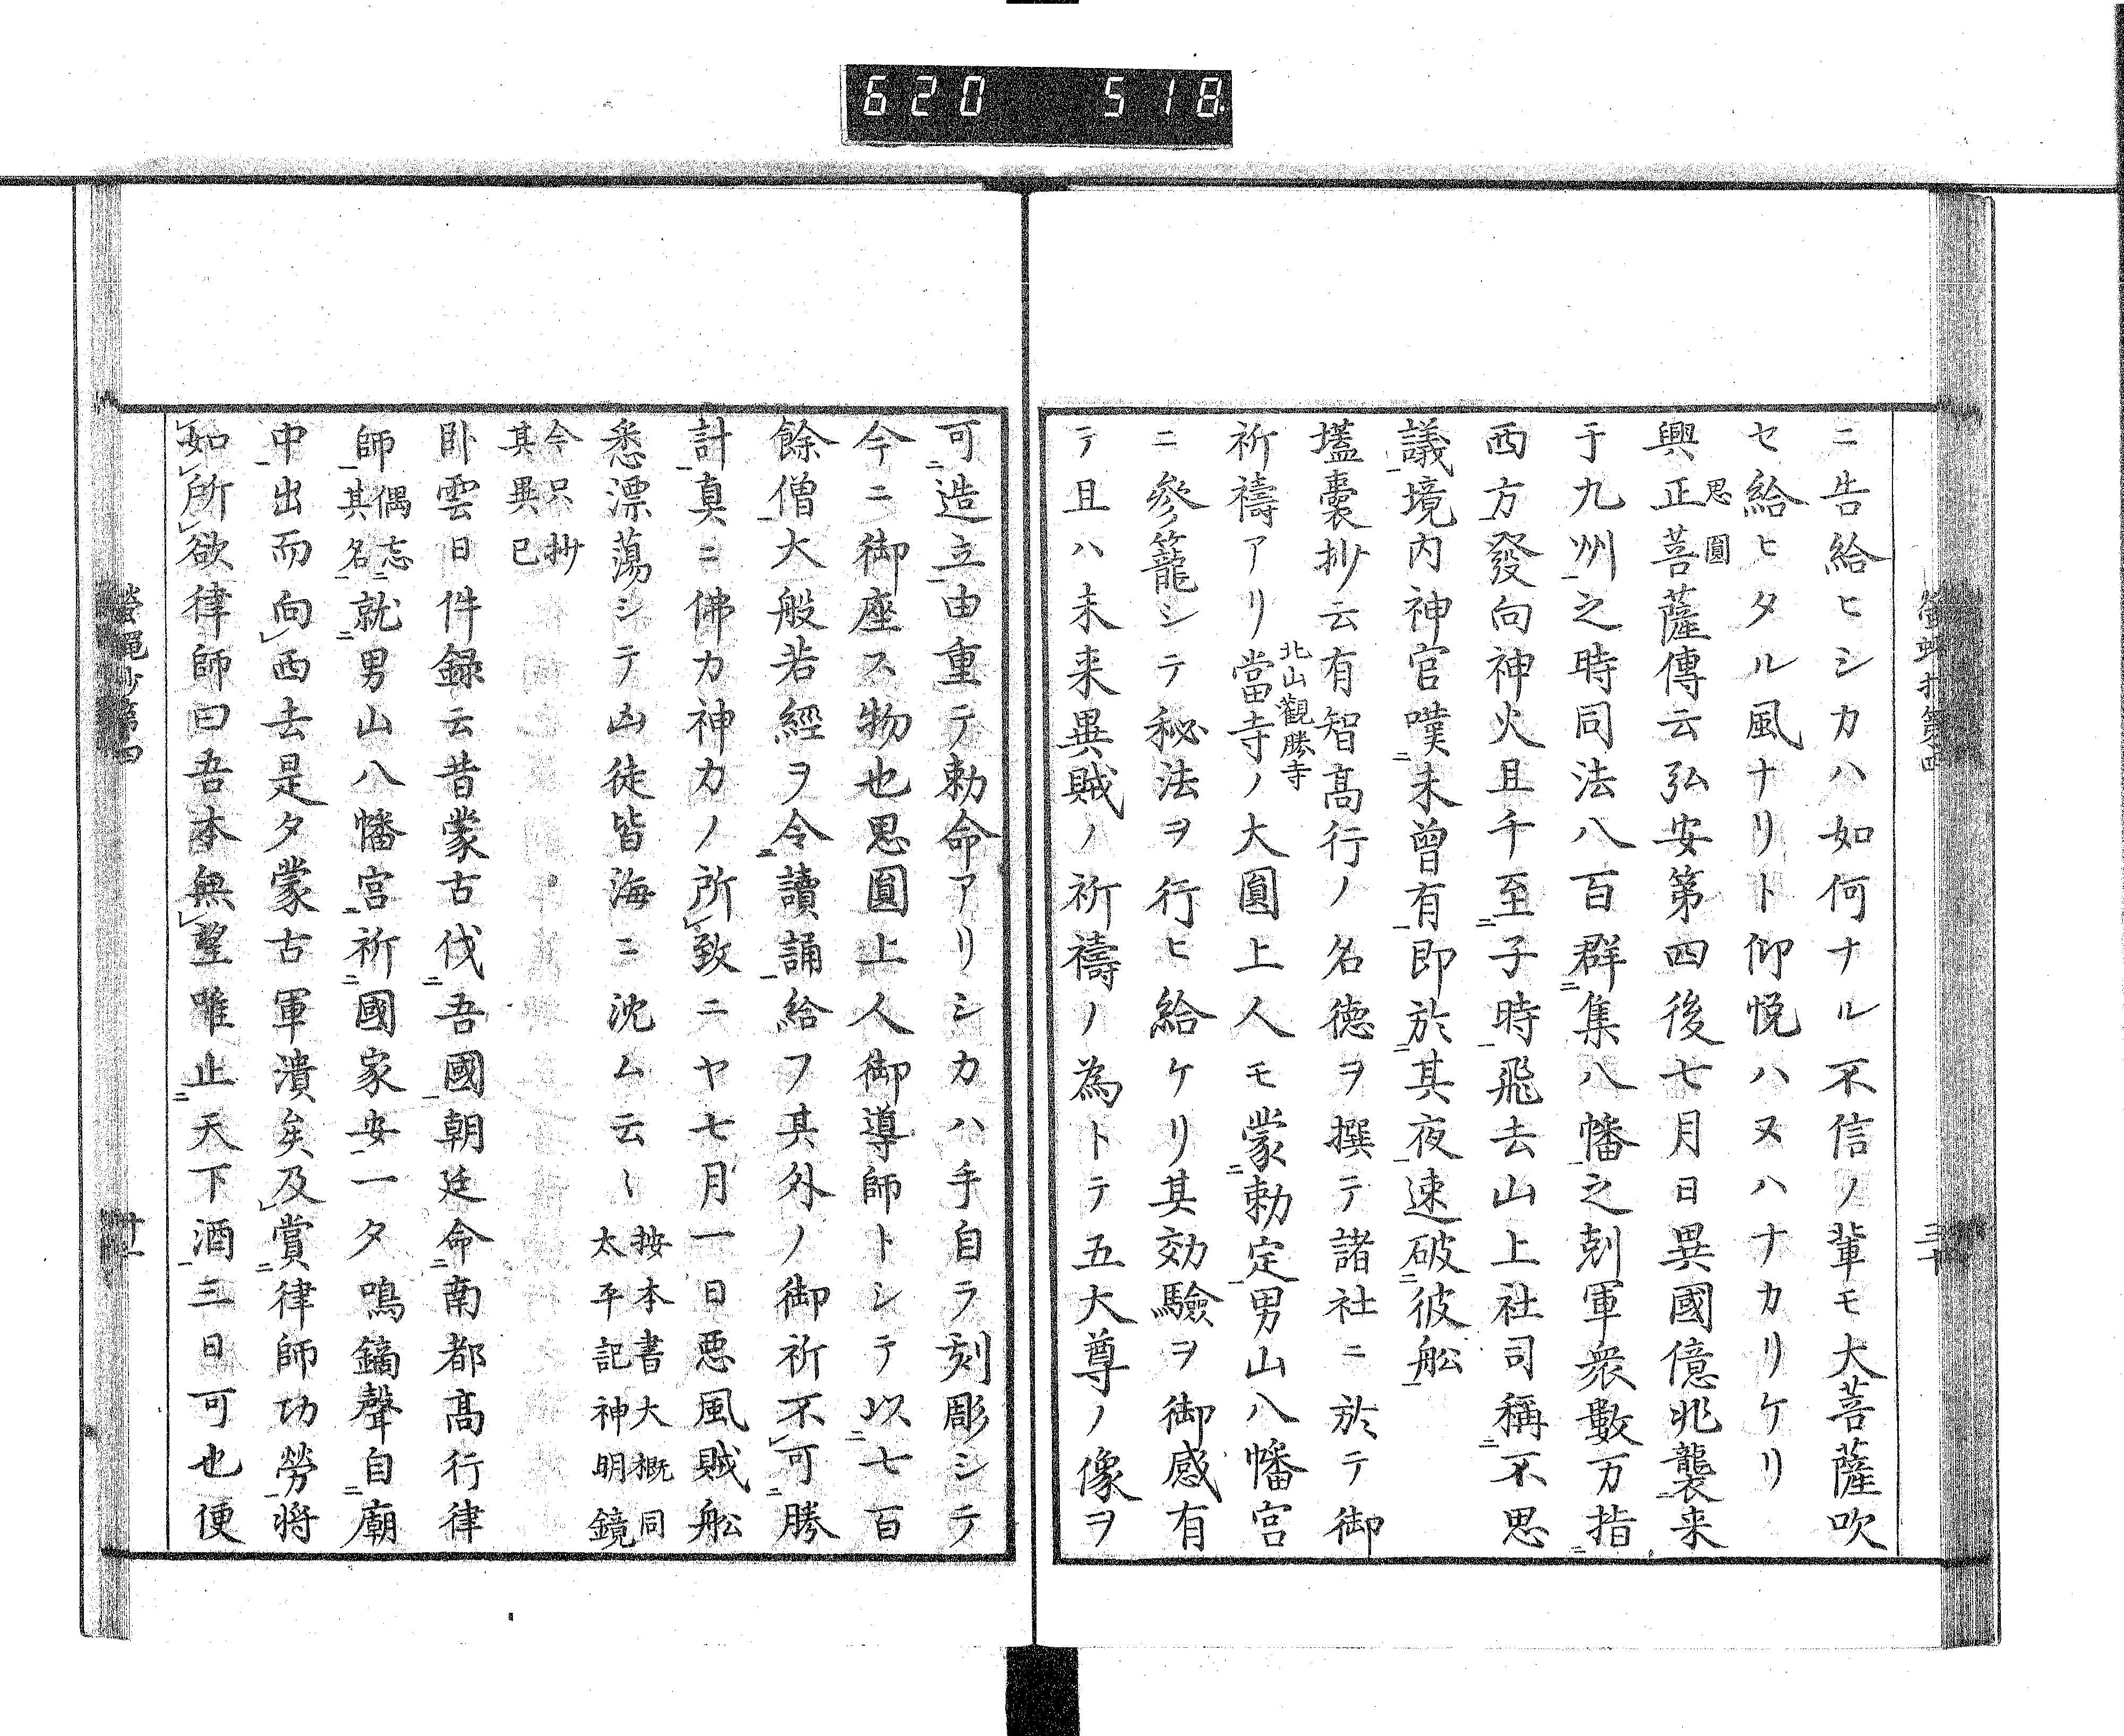 620 518
ニ告給ヒシカハ如何ナル不信ノ輩モ大菩薩吹
セ給ヒタル風ナリト仰悦ハヌハナカリケリ
興正思圓菩薩傳云弘安第四後七月日異國億兆襲来
于九州之時同法八百群集八幡之剋軍衆數万指
西方發向神火且千至子時飛去山上社司稱不思
議境内神官嘆未曾有即於其夜速破彼舩
壒嚢抄云有智髙行ノ名徳ヲ撰テ諸社ニ於テ御
祈禱アリ當寺北山觀勝寺ノ大圓上人モ蒙勅定男山八幡宮
ニ參籠シテ秘法ヲ行ヒ給ケリ其効驗ヲ御感有
テ且ハ未来異賊ノ祈禱ノ為トテ五大尊ノ像ヲ
可造立由重テ勅命アリシカハ手自ラ刻彫シテ
今ニ御座ス物也思圓上人御導師トシテ以七百
餘僧大般若經ヲ令讀誦給フ其外ノ御祈不可勝
計真ニ佛力神力ノ所致ニヤ七月一日悪風賊舩
悉漂蕩シテ凶徒皆海ニ沈ム云〻按本書大概同太平記神明鏡
今只抄其異已
卧雲日件録云昔蒙古伐吾國朝廷命南都髙行律
師偶忘其名就男山八幡宮祈國家安一夕鳴鏑聲自廟
中出而向西去是夕蒙古軍潰矣及賞律師功勞将
如所欲律師曰吾本無望唯止天下酒三日可也便
螢蠅抄第四
三十
螢蠅抄第四
卅一